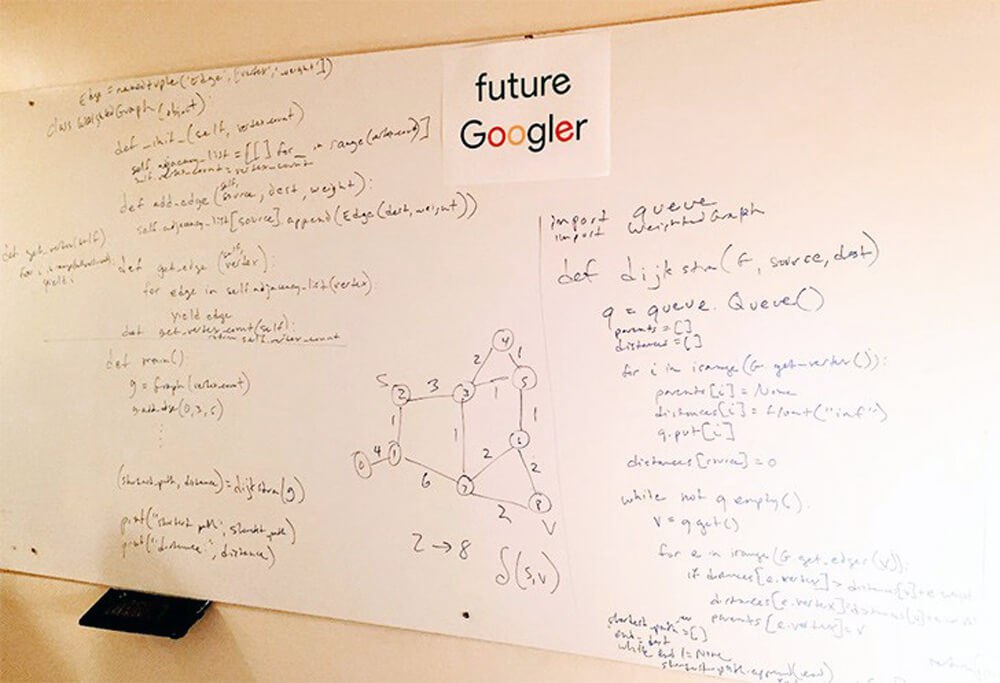 future
Googler
Edge = namedtuple('Edge', ['vertex', 'weight'])
class WeightedGraph(object):
def _init_(self, vertex_count)
self.adjacency_list = [[] for _ in range(vertex_count)]
self.vertex_count = vertex_count
def add_edge(self, source, dest, weight):
self.adjacency_list[source].append(Edge(dest, weight))
def get_vertex(self)
for i in
yield i
def get_edge(self, vertex):
for edge in self.adjacency_list(vertex)
yield edge
def get_vertex_count(self):
return self.vertex_count
def main():
g = Graph(vertex_count)
g.add_edge(0,3,5)
(shortest_path, distance) = dijkstra(g)
print("shortest path", shortest_path)
print("distance:", distance)
4
2 1
S 3 5
2 3 1
1 1 1
4 6
0 1 2 2
6 7
2 8
V
2 → 8
δ(S,V)
import queue
import WeightedGraph
def dijkstra(G, source, dest)
q = queue.Queue()
parents = []
distances = []
for i in range(G.get_vertex()):
parents[i] = None
distances[i] = float("inf")
q.put[i]
distances[source] = 0
while not q.empty().
V = q.get()
for e in range(G.get_edges(V)):
if distances[e.vertex] > distances[v] + e
distances[e.vertex] = distances[v] + e
parents[e.vertex] = V
shortest_path = []
end = dest
while end != None
shortest_path.append(end)
return